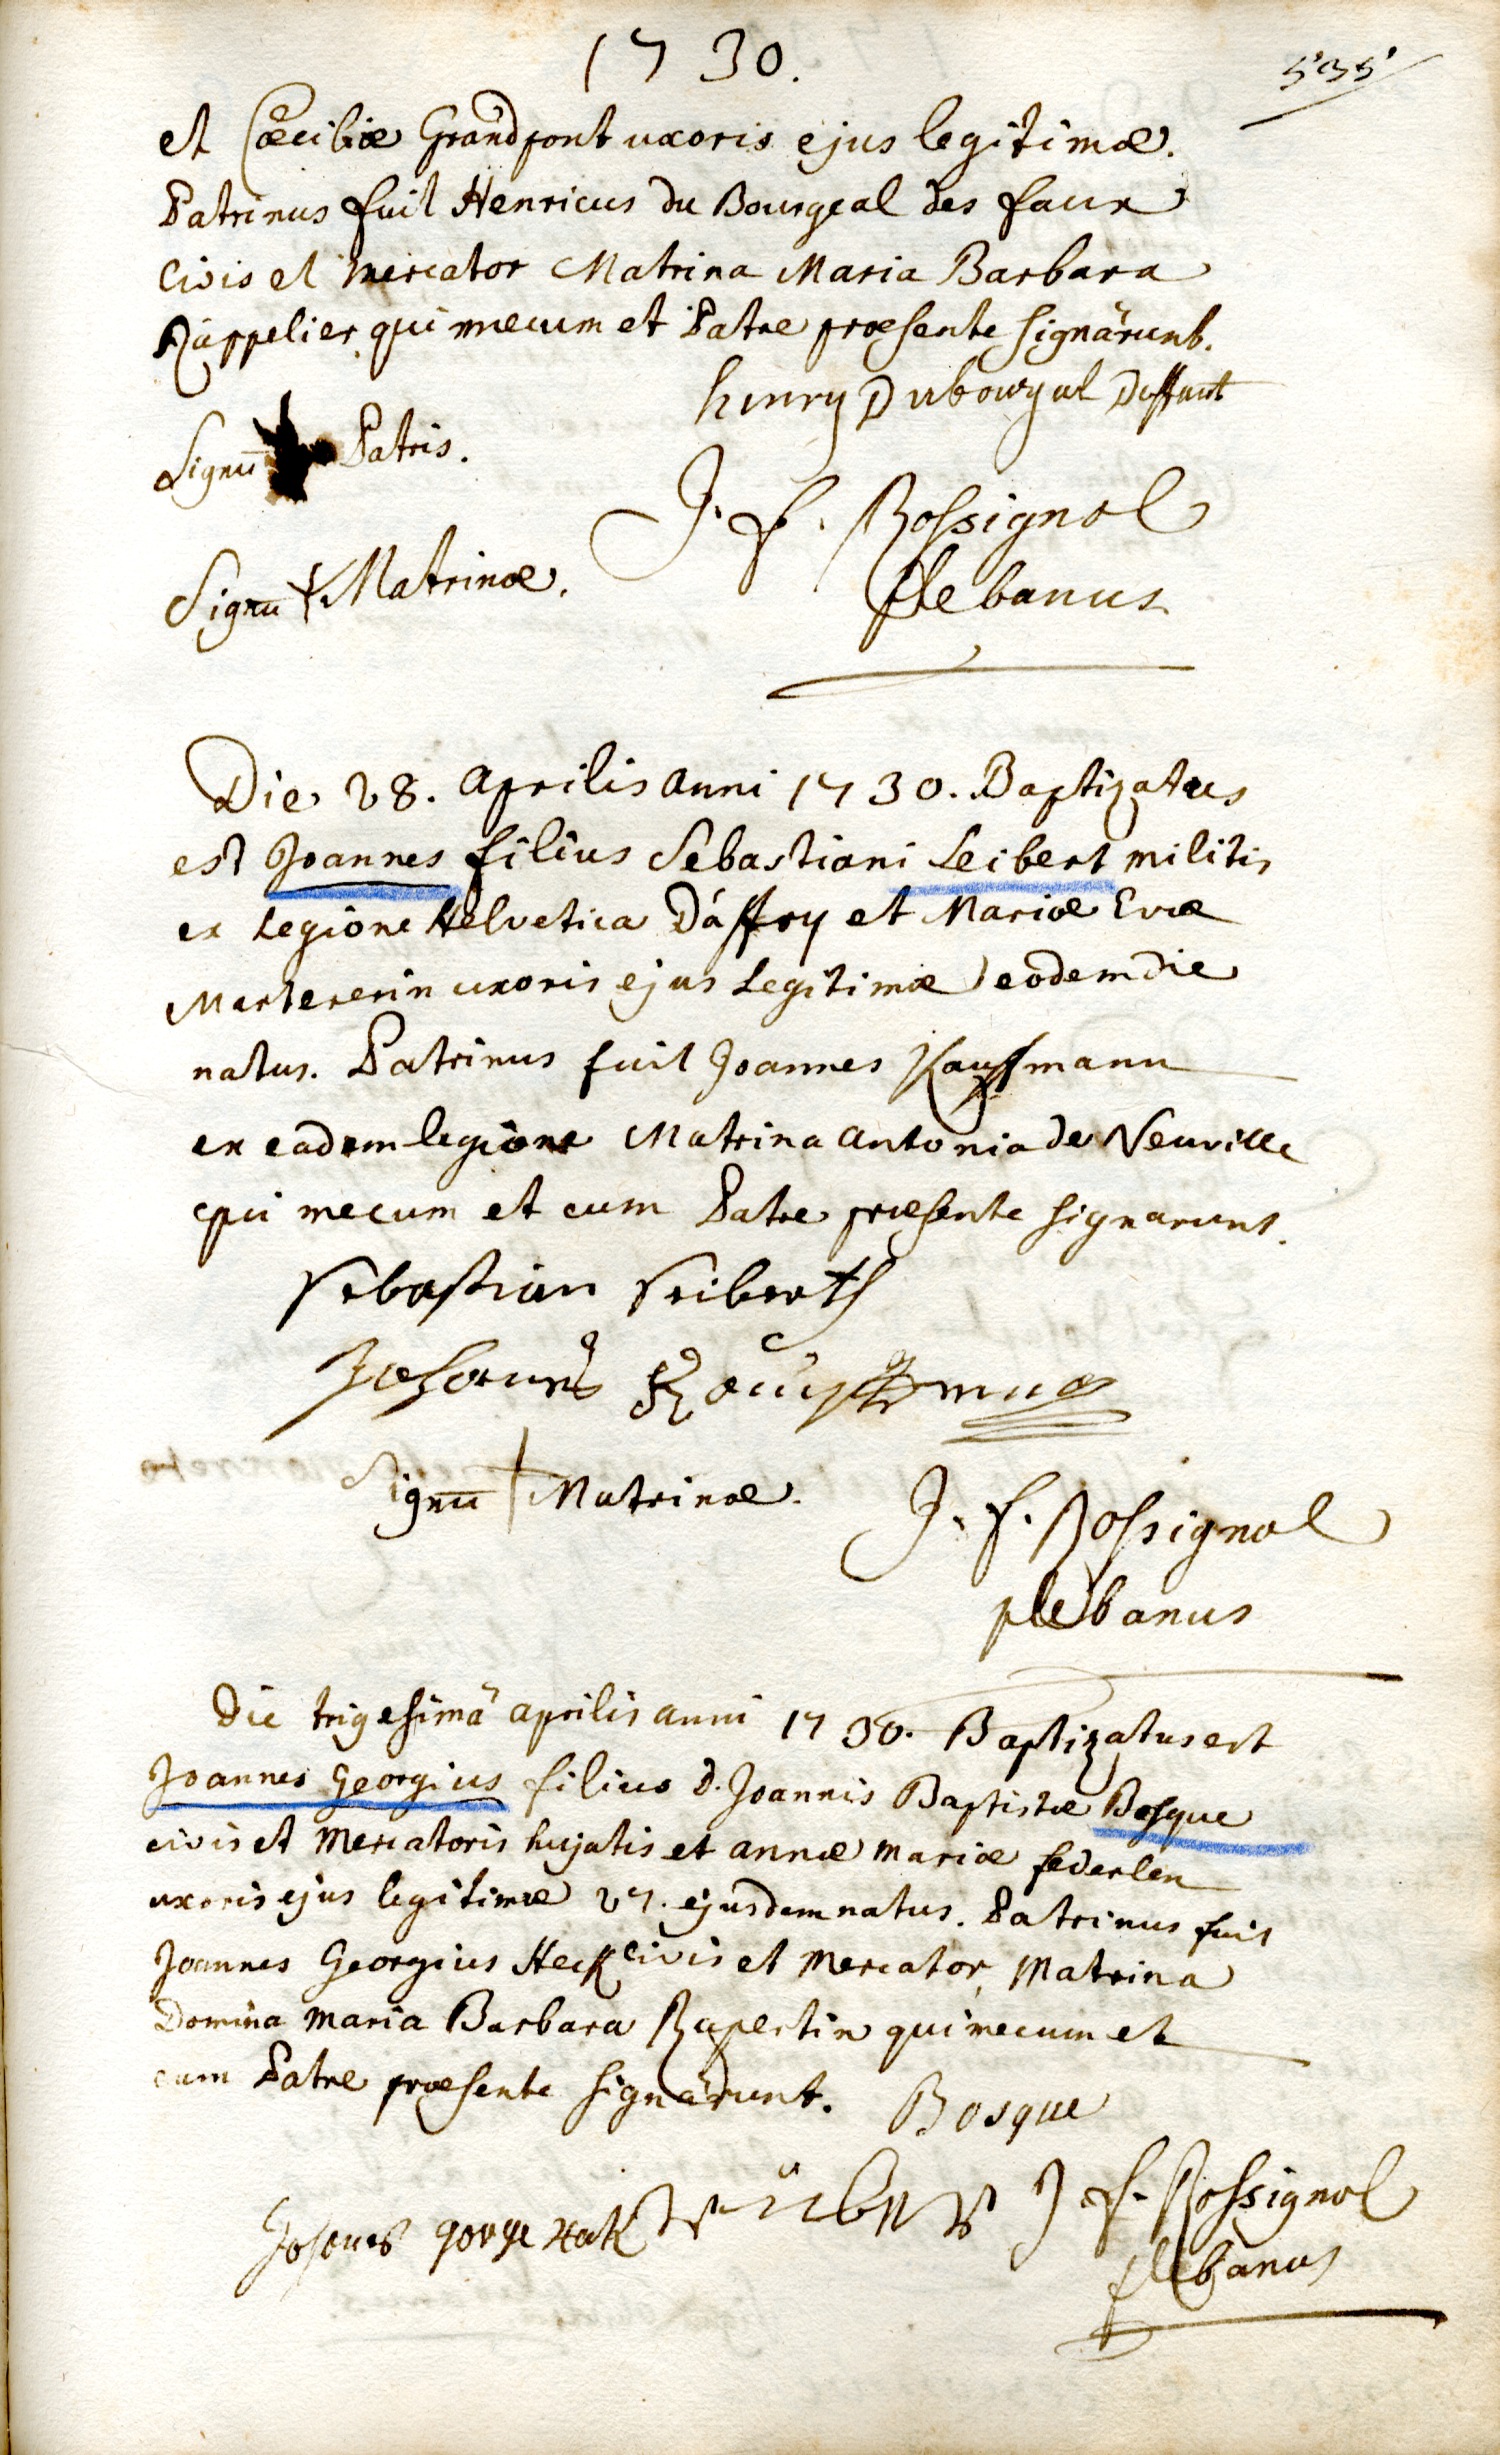 1730.
535
et Cœciliæ Grandpont uxoris ejus legitimæ.
Patrinus fuit Henricus du Bourgeal des faux
Civis et Mercator Matrina Maria Barbara
Rappelier qui mecum et Patre præsente signârunt.
henry Dubourgal
Signū Patris.
J. f. Rossignol
Signū + Matrinæ.
plebanus
Die 28. Aprilis anni 1730. Baptizatus
est Joannes filius Sebastiani Seibert militis
ex Legione Helvetica Dáffry et Mariæ Evæ
Martererin uxoris ejus Legitimæ eodem die
natus. Patrinus fuit Joannes Kauffmann
ex eadem legione Matrina Antonia de Neuville
qui mecum et cum Patre præsente signarunt.
Sebastian Seiberth
Johannes
Signū + Matrinæ.
J. f. Rossignol
plebanus
Die trigesimâ aprilis anni 1730. Baptizatus est
Joannes Georgius filius d. Joannis Baptistæ Bosque
civis et Mercatoris hujatis et annæ mariæ federlen
uxoris ejus legitimæ 27. ejusdem natus. Patrinus fuit
Joannes Georgius Heck civis et Mercator, Matrina
Domina Maria Barbara Rupertin qui mecum et
cum Patre præsente signârunt. Bosque
J f. Rossignol
plebanus